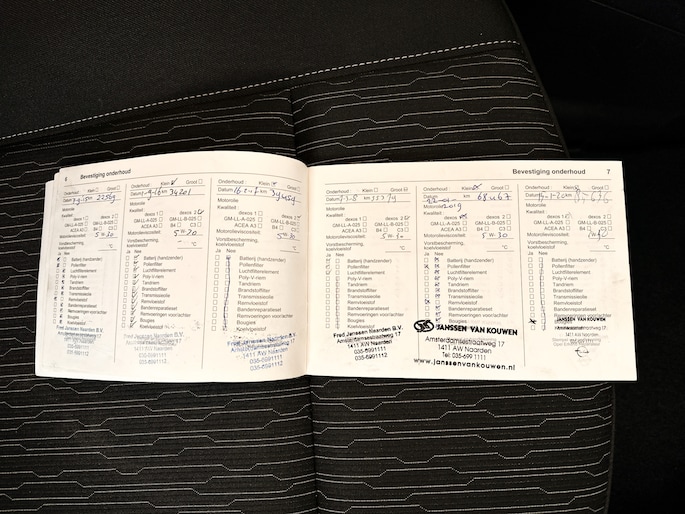 6 Bevestiging onderhoud
Onderhoud: Klein Groot
Datum km 22569
Motorolie
Kwaliteit: dexos 1 dexos 2
GM-LL-A-025 GM-LL-B-025
ACEA A3 B4 C3
Motorolieviscositeit: 5w30
Voorbescherming, koelvloeistof °C
Ja Nee
Batterij (handzender)
Pollenfilter
Luchtfilterelement
Poly-V-riem
Tandriem
Brandstoffilter
Transmissieolie
Remvloeistof
Bandenreparatieset
Remvoeringen voor/achter
Bougies
Koelvloeistof
Fred Janssen Naarden B.V.
Amsterdamsestraatweg 17
1411 AW Naarden
035-6991111
035-6991112
Onderhoud: Klein Groot
Datum km 34201
Motorolie
Kwaliteit:
dexos 1 dexos 2
GM-LL-A-025 GM-LL-B-025
ACEA A3 B4 C3
Motorolieviscositeit: 5w30
Voorbescherming,
koelvloeistof °C
Ja Nee
Batterij (handzender)
Pollenfilter
Luchtfilterelement
Poly-V-riem
Tandriem
Brandstoffilter
Transmissieolie
Remvloeistof
Bandenreparatieset
Remvoeringen voor/achter
Bougies
Koelvloeistof
Fred Janssen Naarden B.V.
Amsterdamsestraatweg 17
1411 AW Naarden
035-6991111
035-6991112
Onderhoud: Klein Groot
Datum km
Motorolie
Kwaliteit:
dexos 1 dexos 2
GM-LL-A-025 GM-LL-B-025
ACEA A3 B4 C3
Motorolieviscositeit: 5w30
Vorstbescherming,
koelvloeistof °C
Ja Nee
Batterij (handzender)
Pollenfilter
Luchtfilterelement
Poly-V-riem
Tandriem
Brandstoffilter
Transmissieolie
Remvloeistof
Bandenreparatieset
Remvoeringen voor/achter
Bougies
Koelvloeistof
Fred Janssen Naarden B.V.
Amsterdamsestraatweg 17
1411 AW Naarden
035-6991111
035-6991112
Bevestiging onderhoud 7
Onderhoud: Klein Groot
Datum km
Motorolie
Kwaliteit:
dexos 1 dexos 2
GM-LL-A-025 GM-LL-B-025
ACEA A3 B4 C3
Motorolieviscositeit: 5w30
Vorstbescherming,
koelvloeistof °C
Ja Nee
Batterij (handzender)
Pollenfilter
Luchtfilterelement
Poly-V-riem
Tandriem
Brandstoffilter
Transmissieolie
Remvloeistof
Bandenreparatieset
Remvoeringen voor/achter
Bougies
Koelvloeistof
Fred Janssen Naarden B.V.
Amsterdamsestraatweg 17
1411 AW Naarden
035-6991111
035-6991112
Onderhoud: Klein Groot
Datum km 68467
Motorolie 2019
Kwaliteit:
dexos 1 dexos 2
GM-LL-A-025 GM-LL-B-025
ACEA A3 B4 C3
Motorolieviscositeit: 5w30
Vorstbescherming,
koelvloeistof °C
Ja Nee
Batterij (handzender)
Pollenfilter
Luchtfilterelement
Poly-V-riem
Tandriem
Brandstoffilter
Transmissieolie
Remvloeistof
Bandenreparatieset
Remvoeringen voor/achter
Bougies
JANSSEN VAN KOUWEN
Amsterdamsestraatweg 17
1411 AW Naarden
Tel: 035-699 1111
www.janssenvankouwen.nl
Onderhoud: Klein Groot
Datum km
Motorolie
Kwaliteit:
dexos 1 dexos 2
GM-LL-A-025 GM-LL-B-025
ACEA A3 B4 C3
Motorolieviscositeit:
Vorstbescherming,
koelvloeistof °C
Ja Nee
Batterij (handzender)
Pollenfilter
Luchtfilterelement
Poly-V-riem
Tandriem
Brandstoffilter
Transmissieolie
Remvloeistof
Bandenreparatieset
Remvoeringen voor/achter
JANSSEN VAN KOUWEN